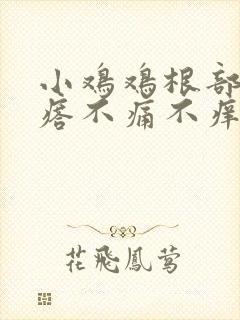 小鸡鸡根部
痞不痛不痒
花飛鳳莺